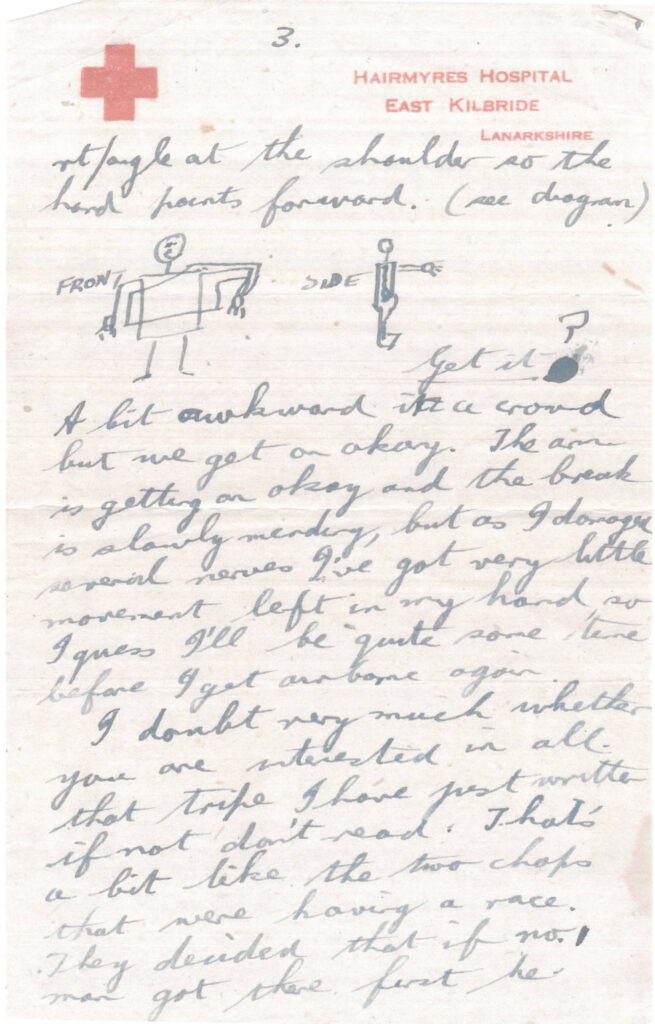 3.
HAIRMYRES HOSPITAL
EAST KILBRIDE
LANARKSHIRE
rt/angle at the shoulder so the
hand points forward. (see diagram)
FRONT
SIDE
Get it ?
A bit awkward in a crowd
but we get on okay. The arm
is getting on okay and the break
is slowly mending, but as I damaged
several nerves I've got very little
movement left in my hand, so
I guess I'll be quite some time
before I get airborne again.
I doubt very much whether
you are interested in all
that tripe I have just written
if not don't read. That's
a bit like the two chaps
that were having a race.
They decided that if no. 1
man got there first he